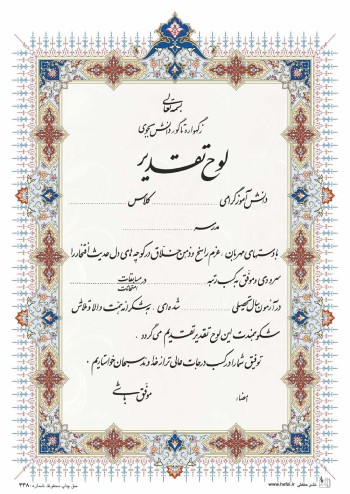 بسمه تعالی
زگهواره تا گور دانش بجوی
لوح تقدیر
دانش آموز گرامی کلاس
مدرسه
با دستهای مهربان، عزم راسخ و ذهن خلاق در کوچه های دل حدیث افتخار را
سرودی و موفق به کسب رتبه در مسابقات
امتحانات
در آزمون سال تحصیلی شده ای. به شکرانه همت والا و تلاش
شکوهمندت این لوح تقدیر تقدیم می گردد.
توفیق شما را در کسب درجات عالی تر از خداوند سبحان خواستاریم.
امضاء موفق باشی
حق چاپ محفوظ شماره ۳۳۸۰
نشر حافظی www.hefzi.ir